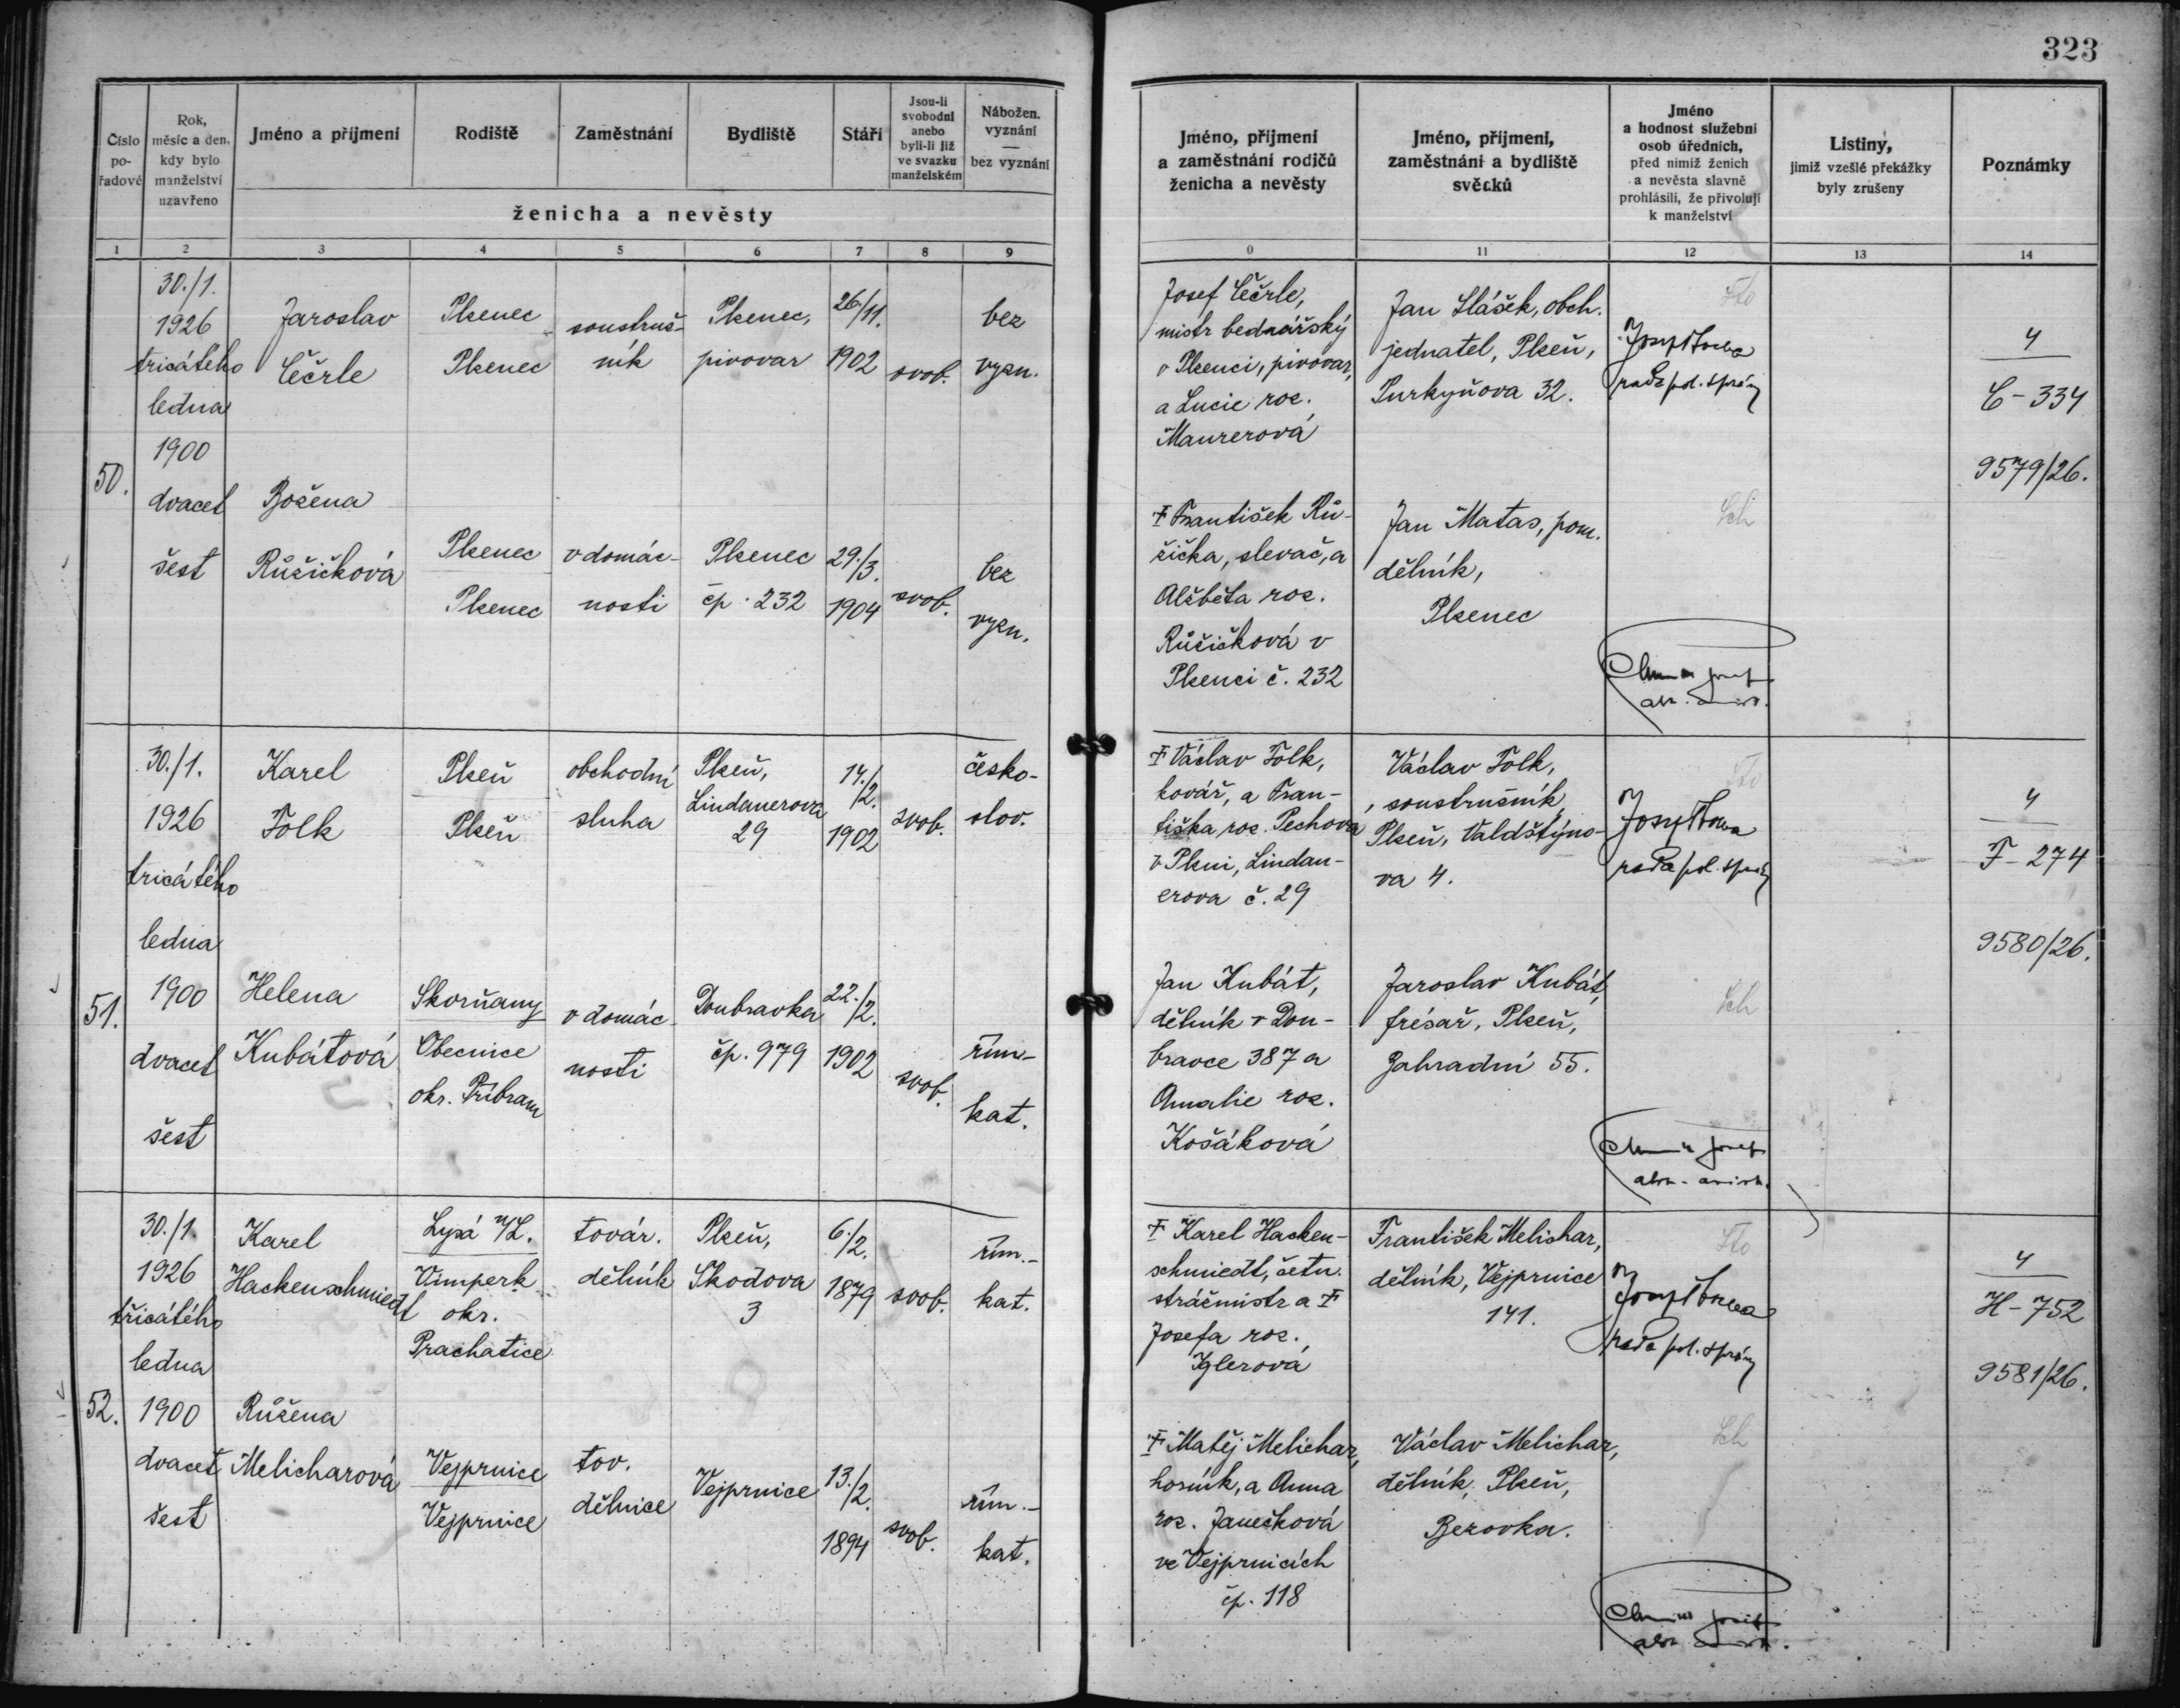 323
Číslo
po-
řadové
Rok,
měsíc a den,
kdy bylo
manželství
uzavřeno
Jméno a příjmení
Rodiště
Zaměstnání
Bydliště
Stáří
Jsou-li
svobodni
anebo
byli-li již
ve svazku
manželském
Nábožen.
vyznání
—
bez vyznání
ženicha a nevěsty
Jméno, příjmení
a zaměstnání rodičů
ženicha a nevěsty
Jméno, příjmení,
zaměstnání a bydliště
svědků
Jméno
a hodnost služební
osob úředních,
před nimiž ženich
a nevěsta slavně
prohlásili, že přivolují
k manželství
Listiny,
jimiž vzešlé překážky
byly zrušeny
Poznámky
1 2 3 4 5 6 7 8 9 0 11 12 13 14
50.
30./1.
1926
tricátého
ledna
1900
dvacet
šest
Jaroslav
Čečrle
Plzenec
Plzenec
soustruž-
ník
Plzenec,
pivovar
26./11.
1902
svob.
bez
vyzn.
Josef Čečrle,
mistr bednářský
v Plzenci, pivovar,
a Lucie roz.
Maurerová
Jan Slášek, obch.
jednatel, Plzeň,
Purkyňova 32.
rada pol. správy
4
C-334
9579/26.
Božena
Růžičková
Plzenec
Plzenec
v domác-
nosti
Plzenec
čp. 232
29./3.
1904
svob.
bez
vyzn.
† František Rů-
žička, slevač, a
Alžběta roz.
Růžičková v
Plzenci č. 232
Jan Matas, pom.
dělník,
Plzenec
51.
30./1.
1926
tricátého
ledna
1900
dvacet
šest
Karel
Folk
Plzeň
Plzeň
obchodní
sluha
Plzeň,
Lindauerova
29
14./2.
1902
svob.
česko-
slov.
† Václav Folk,
kovář, a Fran-
tiška roz. Pechova
v Plzni, Lindau-
erova č. 29
Václav Folk,
soustružník,
Plzeň, Valdštýno-
va 4.
rada pol. správy
4
F-274
9580/26.
Helena
Kubátová
Skorňany
Obecnice
okr. Příbram
v domác-
nosti
Doubravka
čp. 979
22./2.
1902
svob.
řím-
kat.
Jan Kubát,
dělník v Dou-
bravce 387 a
Amalie roz.
Košáková
Jaroslav Kubát,
frésař, Plzeň,
Zahradní 55.
52.
30./1.
1926
třicátého
ledna
1900
dvacet
šest
Karel
Hackenschmiedt
Lysá n/L.
Vimperk
okr.
Prachatice
továr.
dělník
Plzeň,
Škodova
3
6./2.
1879
svob.
řím.-
kat.
† Karel Hacken-
schmiedt, četn.
strážmistr a †
Josefa roz.
Iglerová
František Melichar,
dělník, Vejprnice
141.
rada pol. správy
4
H-752
9581/26.
Růžena
Melicharová
Vejprnice
Vejprnice
tov.
dělnice
Vejprnice
13./2.
1894
svob.
řím.-
kat.
† Matěj Melichar,
horník, a Anna
roz. Janečková
ve Vejprnicích
čp. 118
Václav Melichar,
dělník, Plzeň,
Bezovka.